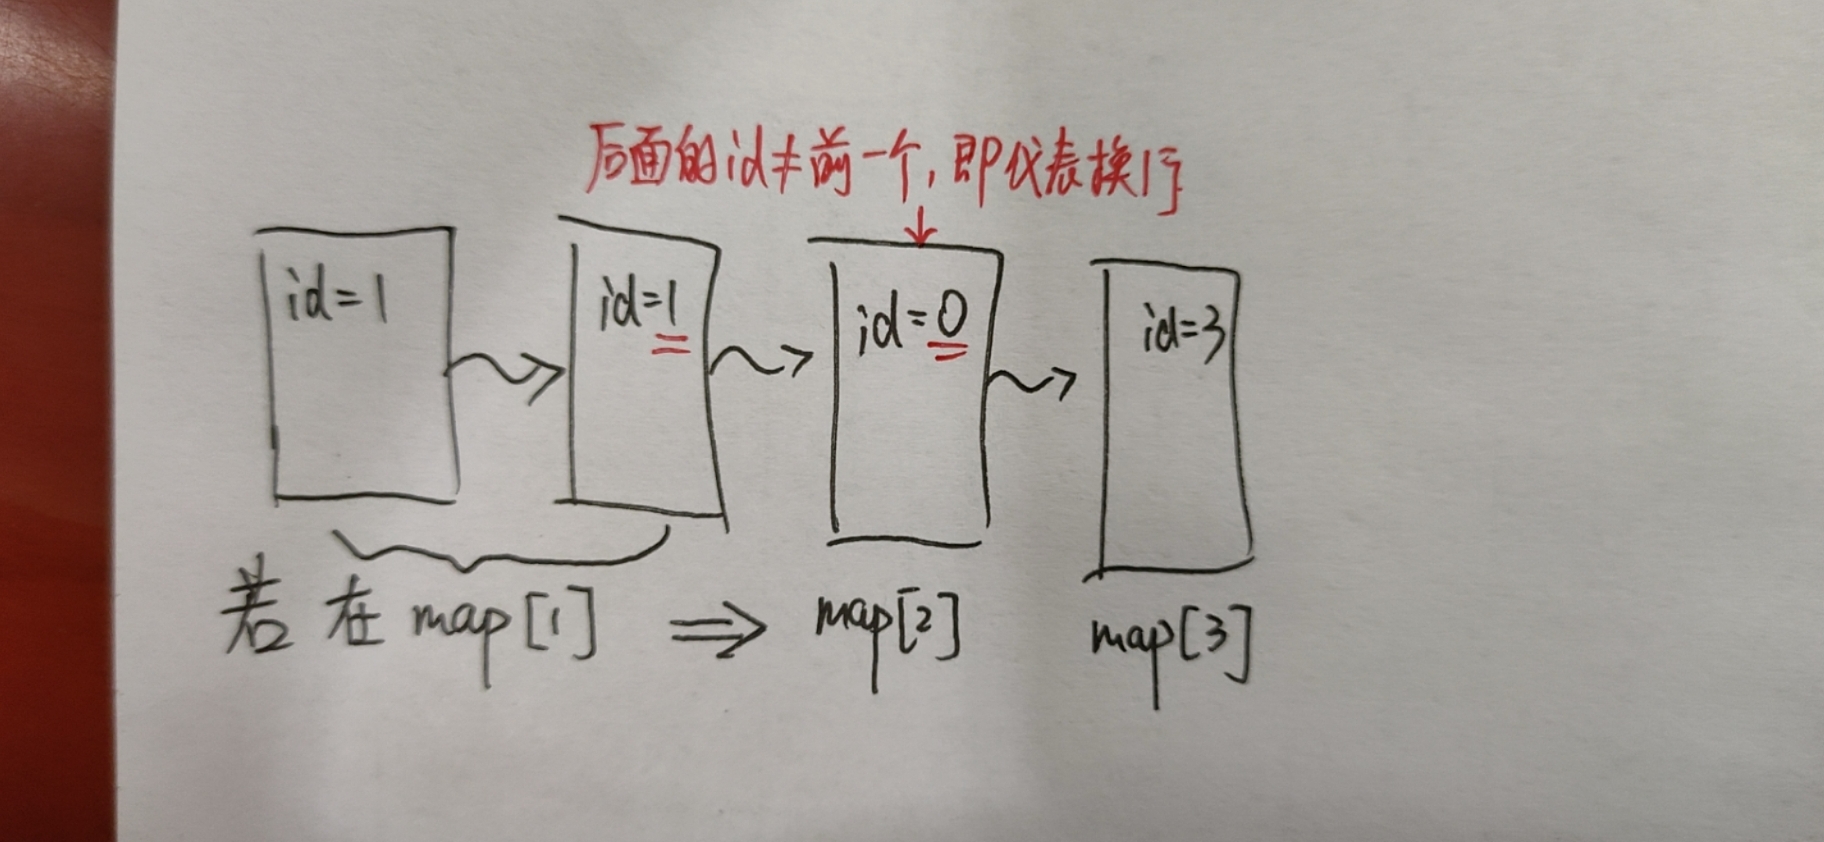 后面的id≠前一个,即仪表换行
id=1
id=1
id=0
id=3
若在map[1] ⇒ map[2] map[3]